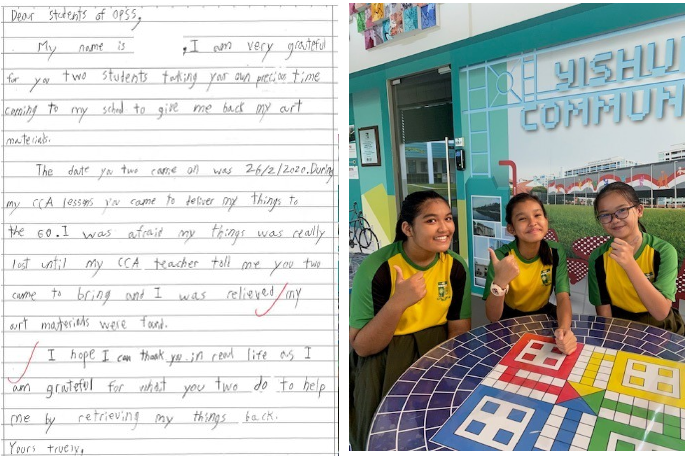 Dear students of OPSS,
My name is , I am very grateful
for you two students taking your own precious time
coming to my school to give me back my art
materials.
The date you two came on was 26/2/2020. During
my CCA lessons you came to deliver my things to
the GO. I was afraid my things was really
lost until my CCA teacher told me you two
came to bring and I was relieved my
art materials were found.
I hope I can thank you in real life as I
am grateful for what you two do to help
me by retrieving my things back.
Yours truely,
YISHU
COMMUN